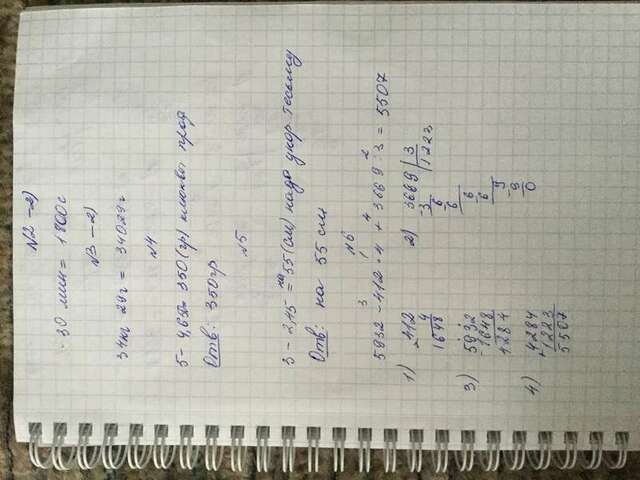 №2 – 2)
30 мин = 1800с
№3 – 2)
34кг 29г = 34029г
№4
5 - 4,650= 350 (гр) клюквы прод
Отв: 350гр
№5
3 - 2,45 = на 55 (см) надо укор тесьму
Отв: на 55 см
№6
3 1 4 2
5932 - 412 · 4 + 3669 : 3 = 5507
1) 412 2) 3669 | 3
× 4 - 3 1223
1648 6
6
3) 5932 6
- 1648 6
4284 9
4) 4284 9
+ 1223 0
5507